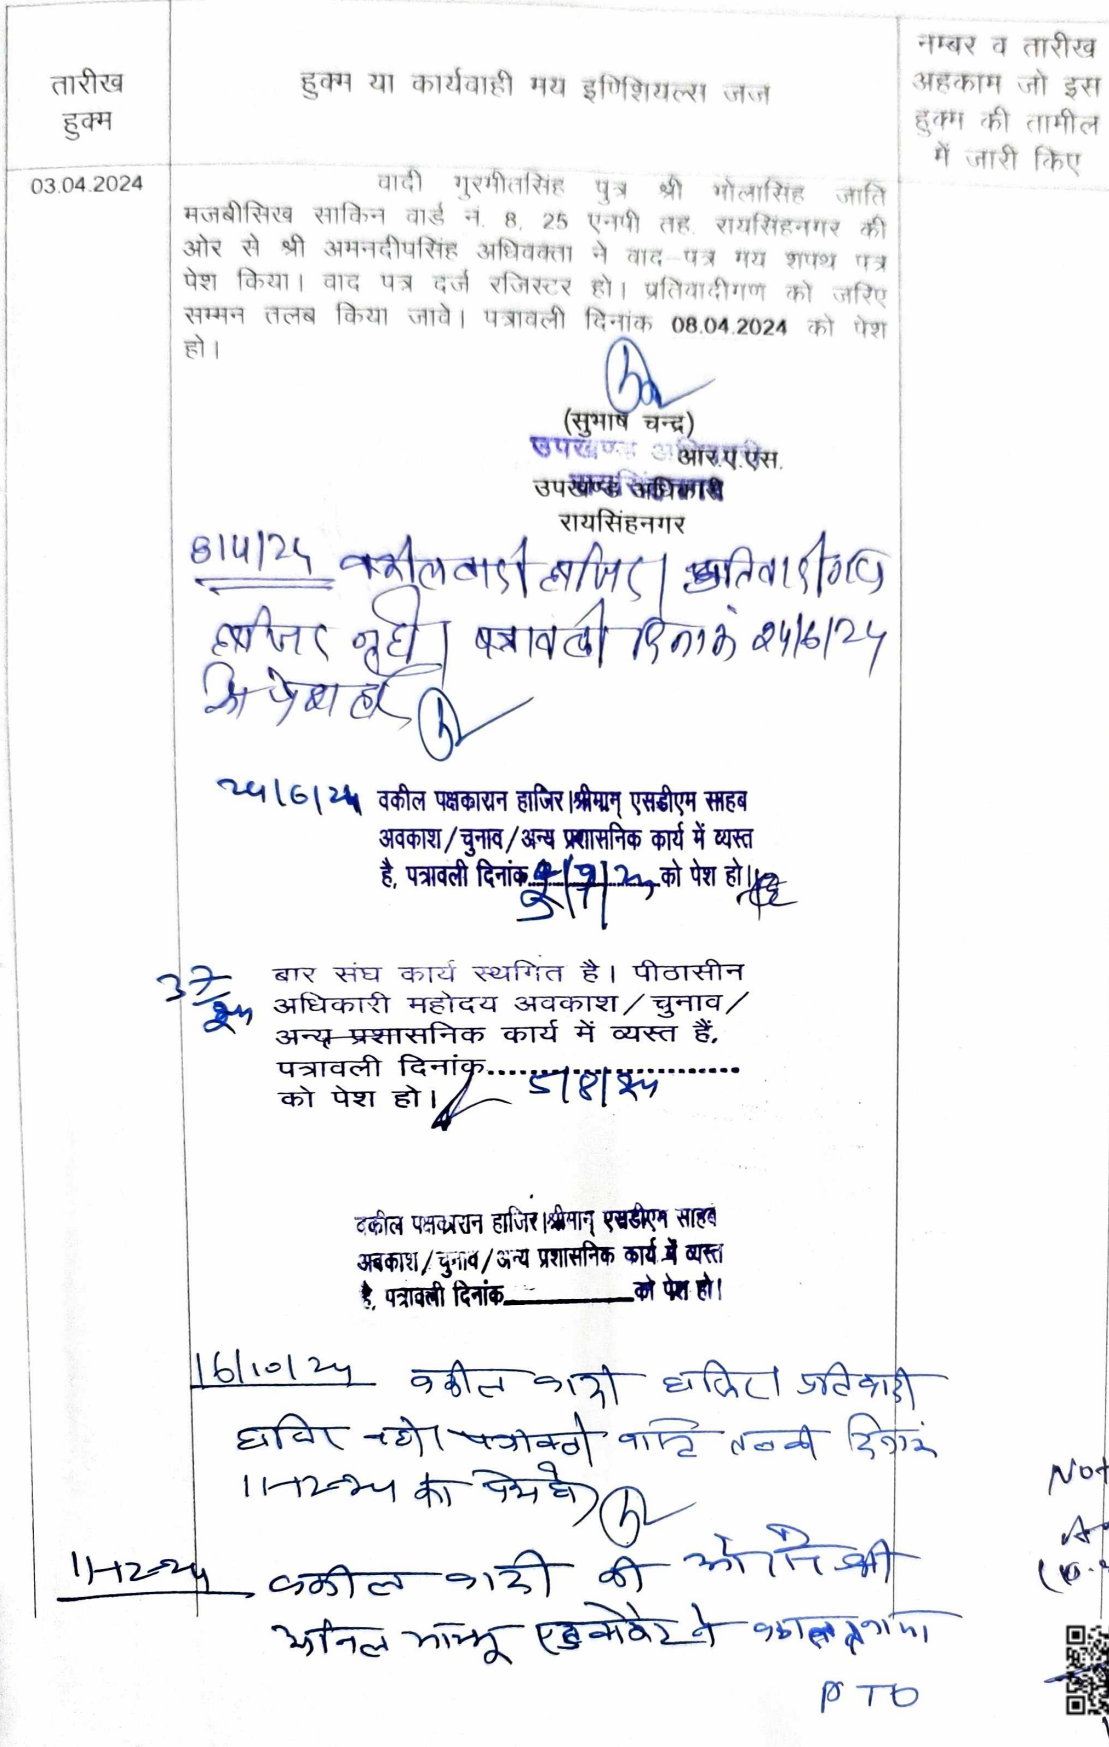 तारीख
हुक्म
हुक्म या कार्यवाही मय इणिशियल्स जज
नम्बर व तारीख
अहकाम जो इस
हुक्म की तामील
में जारी किए
03.04.2024
वादी गुरमीतसिंह पुत्र श्री भोलासिंह जाति
मजबीसिख साकिन वार्ड नं. 8, 25 एनपी तह. रायसिंहनगर की
ओर से श्री अमनदीपसिंह अधिवक्ता ने वाद-पत्र मय शपथ पत्र
पेश किया। वाद पत्र दर्ज रजिस्टर हो। प्रतिवादीगण को जरिए
सम्मन तलब किया जावे। पत्रावली दिनांक 08.04.2024 को पेश
हो।
(सुभाष चन्द्र)
उपखण्ड अधिकारी
आर.ए.एस.
उपखण्ड अधिकारी
रायसिंहनगर
8/4/24 वकील वादी हाजिर। प्रतिवादीगण
हाजिर नही। पत्रावली दिनांक 24/6/24
को पेश हो
24/6/24 वकील पक्षकारान हाजिर।श्रीमान् एसडीएम साहब
अवकाश/चुनाव/अन्य प्रशासनिक कार्य में व्यस्त
है, पत्रावली दिनांक को पेश हो।
3/7/24 बार संघ कार्य स्थगित है। पीठासीन
अधिकारी महोदय अवकाश/चुनाव/
अन्य प्रशासनिक कार्य में व्यस्त हैं,
पत्रावली दिनांक.........................
को पेश हो। 5/8/24
वकील पक्षकारान हाजिर।श्रीमान् एसडीएम साहब
अवकाश/चुनाव/अन्य प्रशासनिक कार्य में व्यस्त
है, पत्रावली दिनांक__________को पेश हो।
16/10/24 वकील वादी हाजिर। प्रतिवादी
हाजिर नही। पत्रावली वास्ते तलबी दिनांक
11-12-24 को पेश हो
11-12-24 वकील वादी की ओर से श्री
अनिल एडवोकेट ने वकालतनामा
PTO
Not